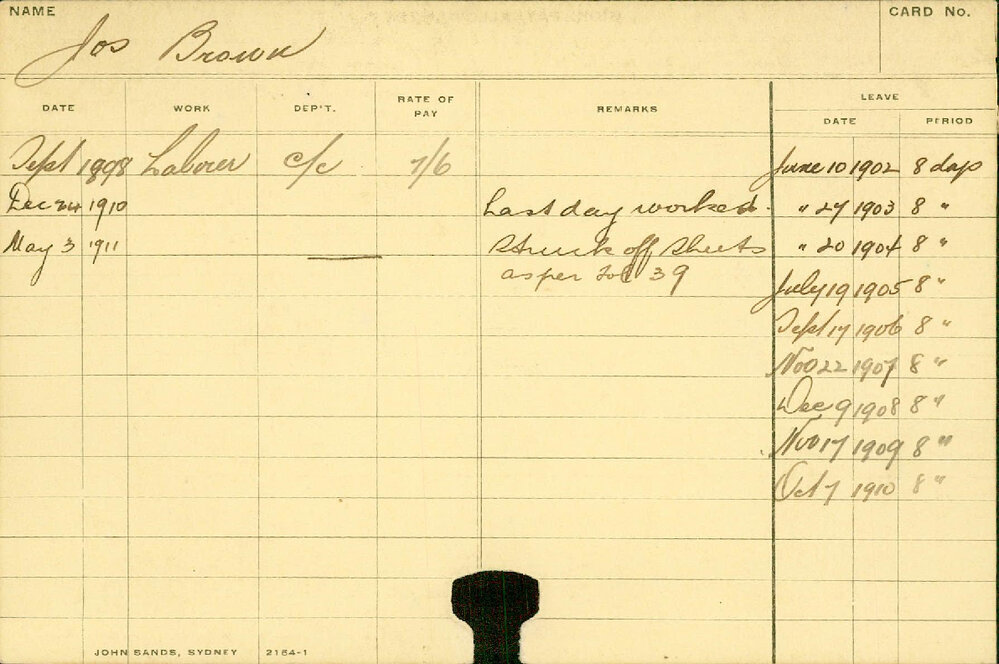 NAME
CARD No.
Jos Brown
DATE WORK DEP'T. RATE OF PAY REMARKS LEAVE
DATE PERIOD
Sept 1898 Laborer c/c 7/6 June 10 1902 8 days
Dec 24 1910 Last day worked. " 27 1903 8 "
May 3 1911 Struck off Sheets " 20 1904 8 "
as per 39 July 19 1905 8 "
Sept 17 1906 8 "
Nov 22 1907 8 "
Dec 9 1908 8 "
Nov 17 1909 8 "
Oct 7 1910 8 "
JOHN SANDS, SYDNEY 2154-1